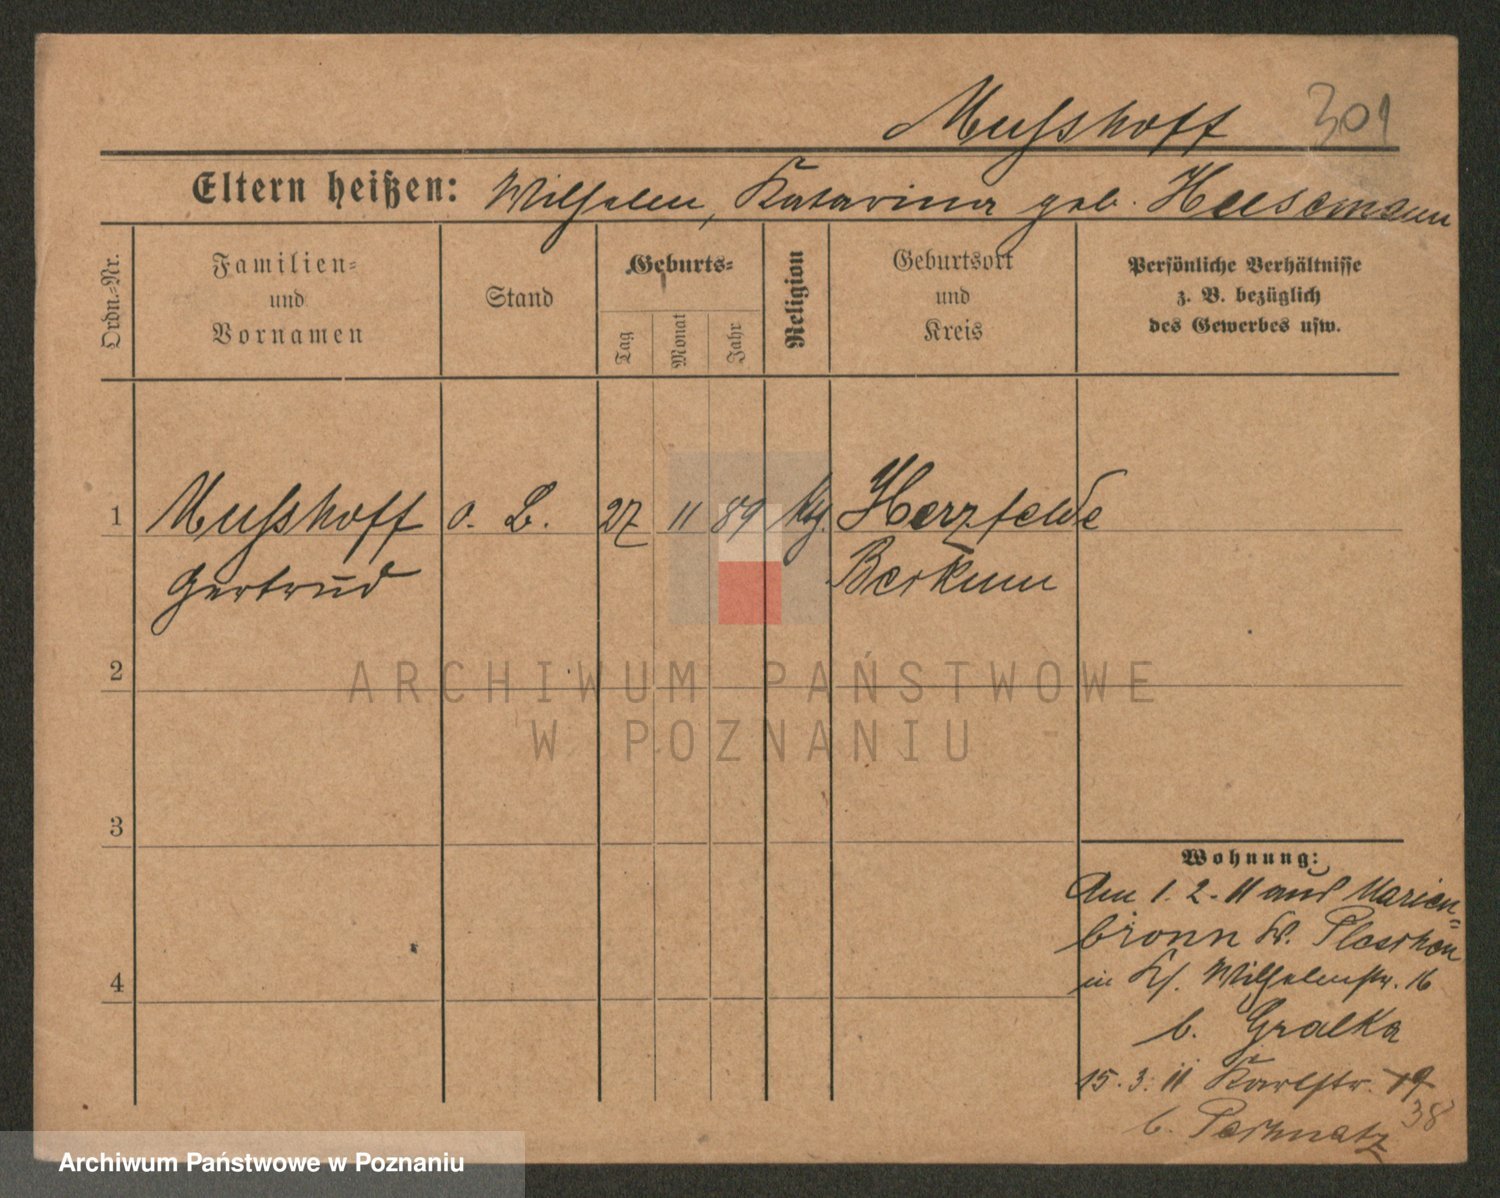 Mußhoff 301
Eltern heißen: Wilhelm, Katarina geb. Heesemann
Ordn.-Nr.
Familien-
und
Vornamen
Stand
Geburts-
Tag
Monat
Jahr
Religion
Geburtsort
und
Kreis
Persönliche Verhältnisse
z. B. bezüglich
des Gewerbes usw.
1 Mußhoff o. B. 27 11 89 Herzfelde
Gertrud
2
3
4
Wohnung:
Am 1.2.11 aus Marien-
bronn Kr. Pleschen
in Wilhelmstr. 16
b. Gralka
15.3.11 Karlstr. 19
38
b.
ARCHIWUM PAŃSTWOWE
W POZNANIU
Archiwum Państwowe w Poznaniu